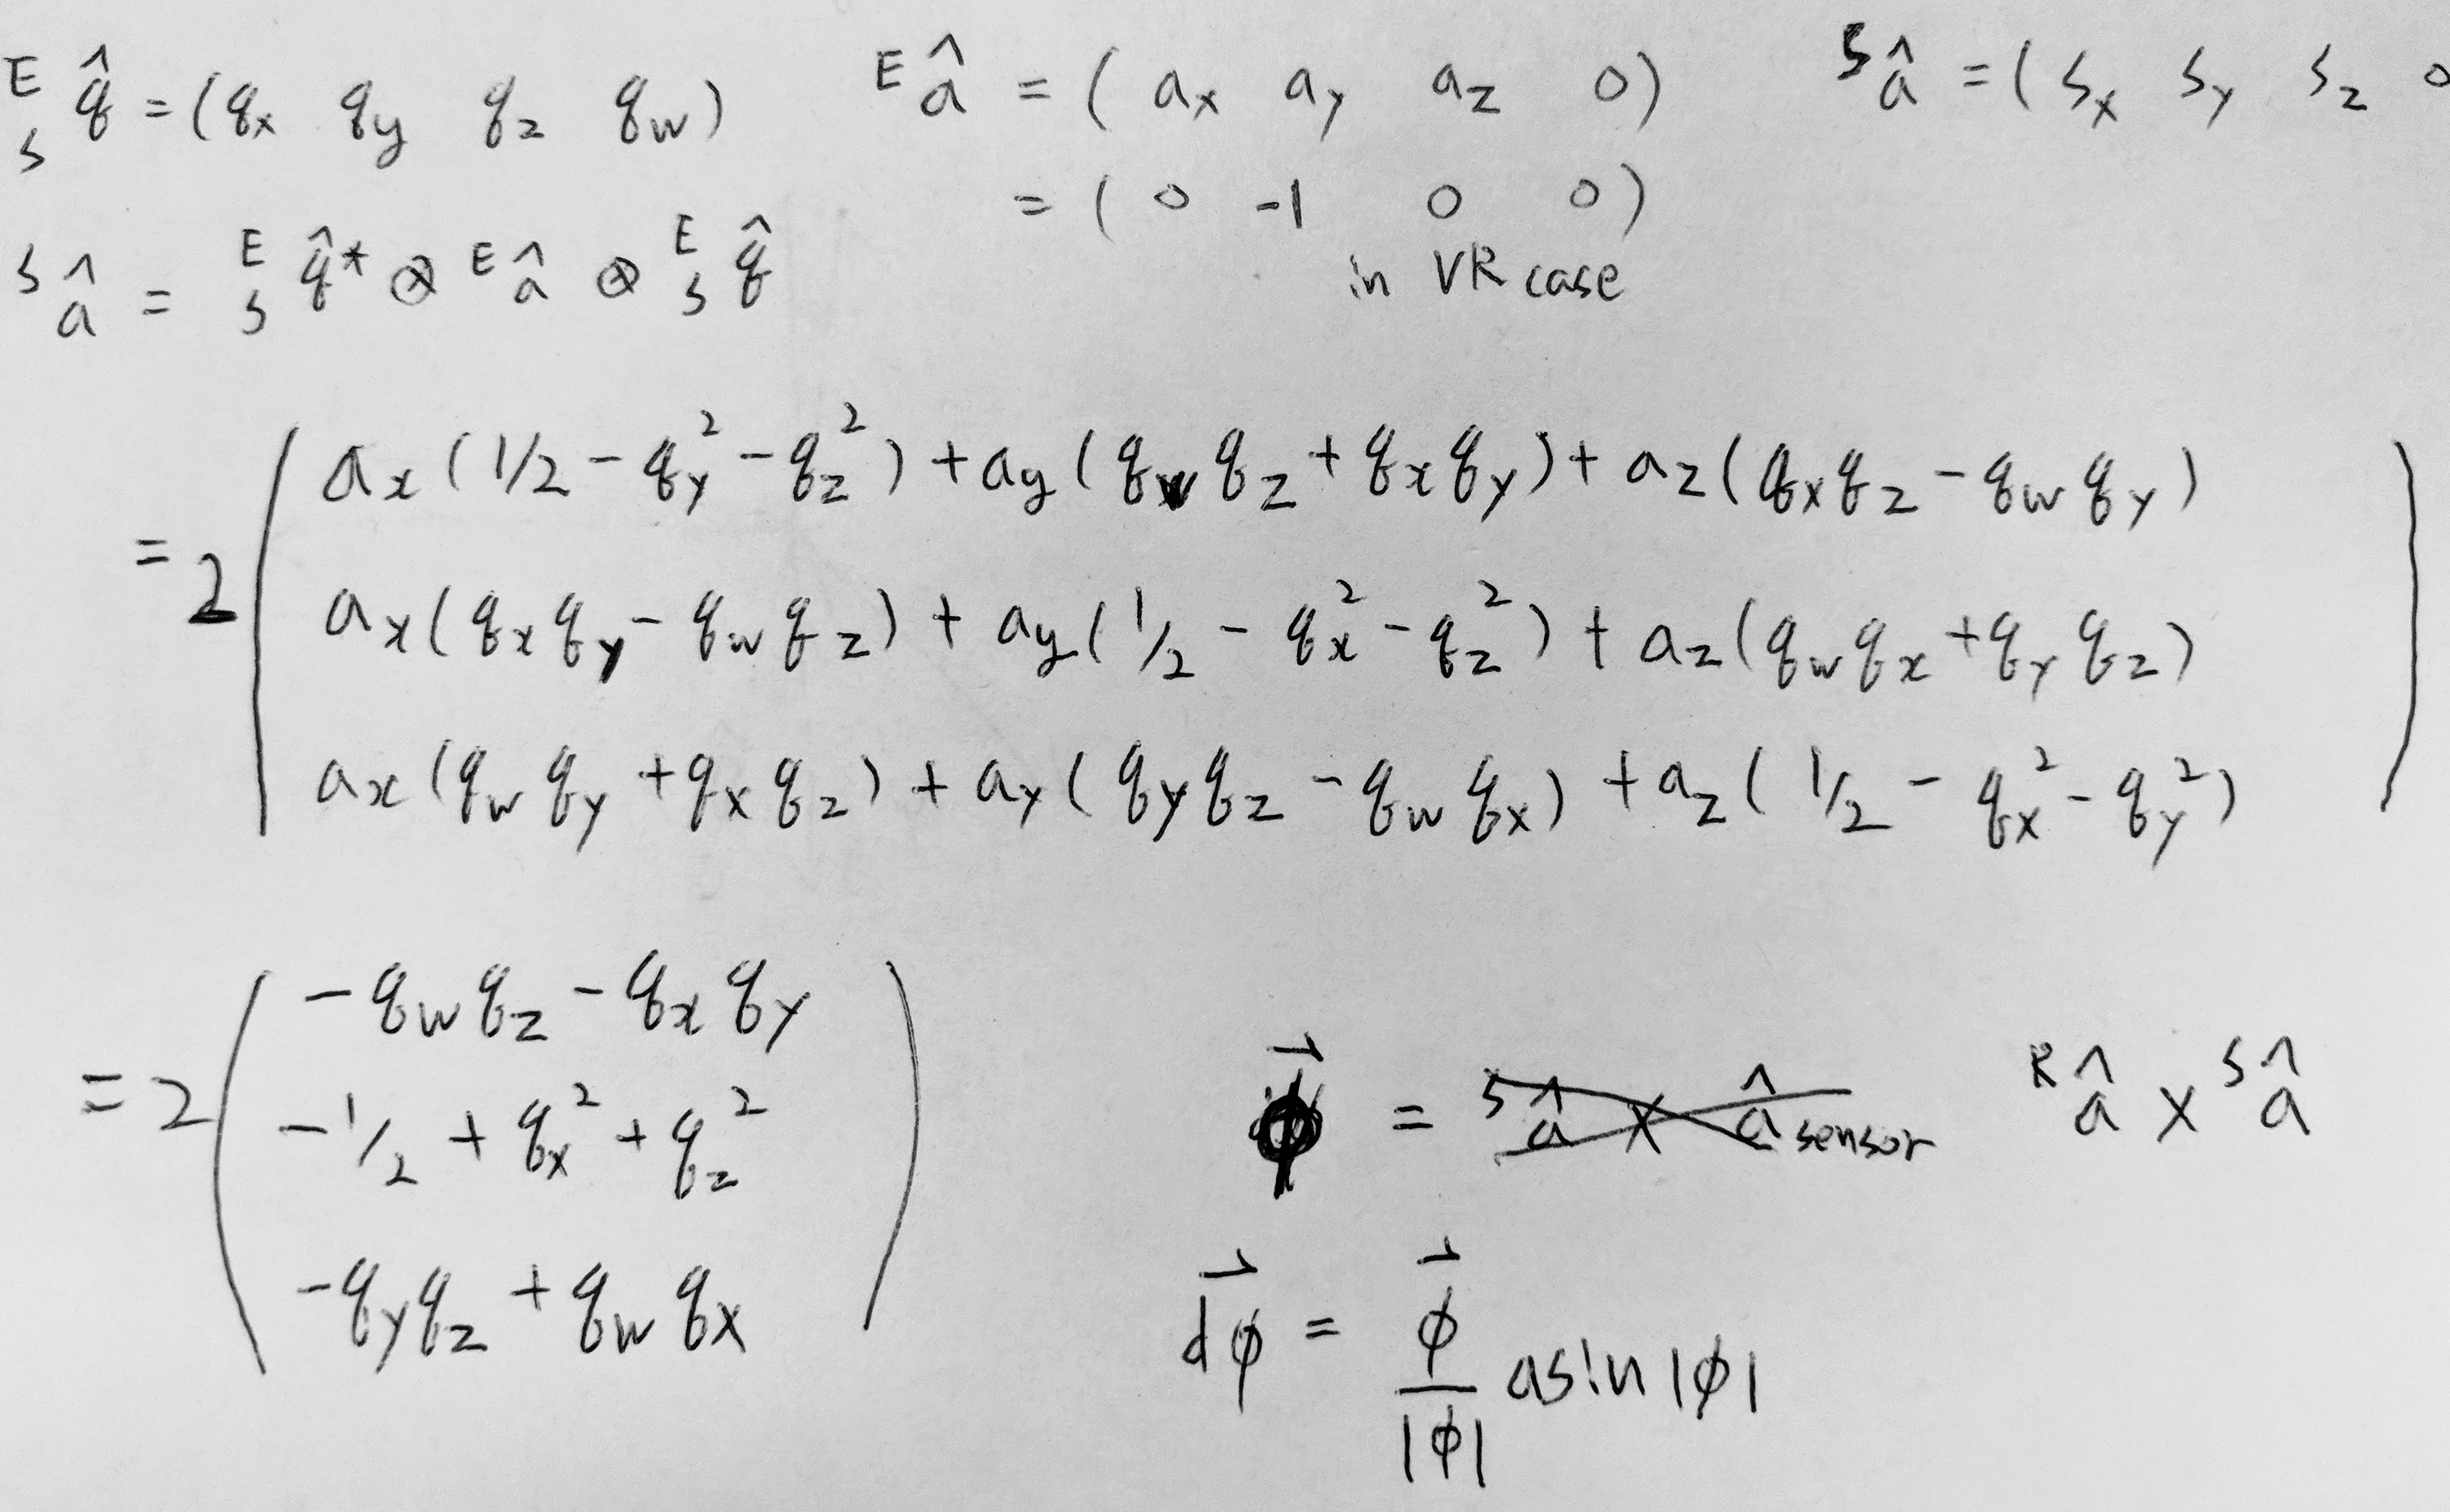 {}^{E}_{S}\hat{q} = (q_x  q_y  q_z  q_w)  {}^{E}\hat{a} = (a_x  a_y  a_z  0)  {}^{S}\hat{a} = (s_x  s_y  s_z  0
= (0  -1  0  0)
in VR case
{}^{S}\hat{a} = {}^{E}_{S}\hat{q}^* ⊗ {}^{E}\hat{a} ⊗ {}^{E}_{S}\hat{q}
a_x(1/2 - q_y^2 - q_z^2) + a_y(q_w q_z + q_x q_y) + a_z(q_x q_z - q_w q_y)
= 2 ( a_x(q_x q_y - q_w q_z) + a_y(1/2 - q_x^2 - q_z^2) + a_z(q_w q_x + q_y q_z) )
a_x(q_w q_y + q_x q_z) + a_y(q_y q_z - q_w q_x) + a_z(1/2 - q_x^2 - q_y^2)
-q_w q_z - q_x q_y
= 2 ( -1/2 + q_x^2 + q_z^2 )
-q_y q_z + q_w q_x
\vec{φ} = {}^{S}\hat{a} × \hat{a}_{sensor}  {}^{R}\hat{a} × {}^{S}\hat{a}
\vec{dφ} = \frac{\vec{φ}}{|φ|} asin|φ|